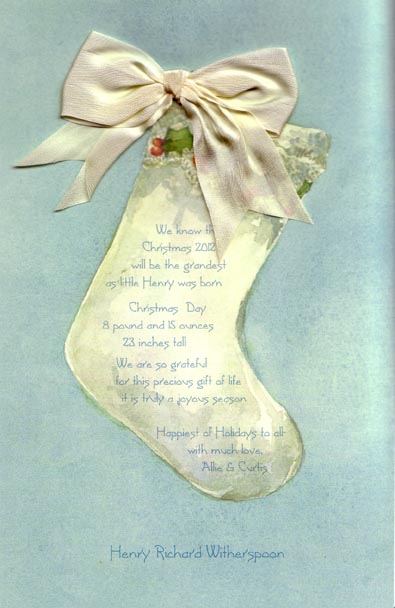 We know
Christmas 2012
will be the grandest
as little Henry was born
Christmas Day
8 pound and 15 ounces
23 inches tall
We are so grateful
for this precious gift of life
it is truly a joyous season
Happiest of Holidays to all
with much love,
Allie & Curtis
Henry Richard Witherspoon